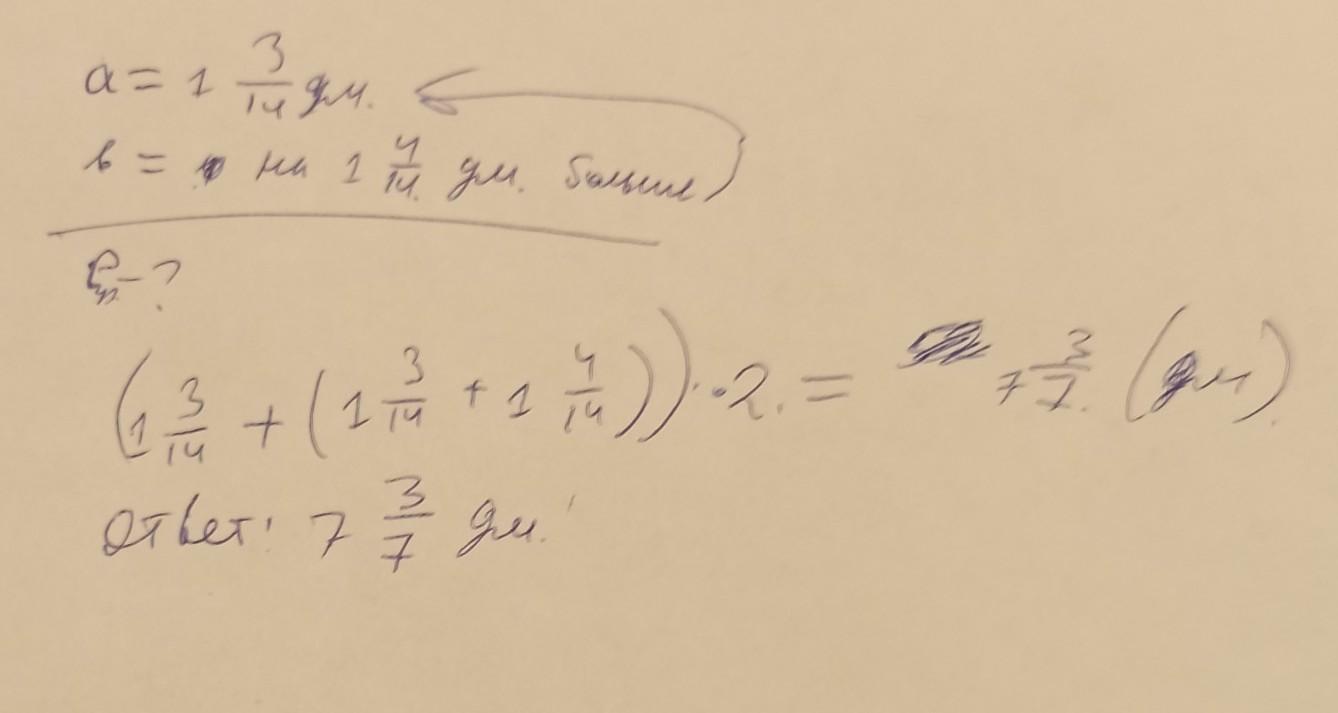 a = 1 3/14 дм.
b = на 1 4/14 дм. больше
P - ?
(1 3/14 + (1 3/14 + 1 4/14)) · 2 = 7 3/7 (дм)
Ответ: 7 3/7 дм.